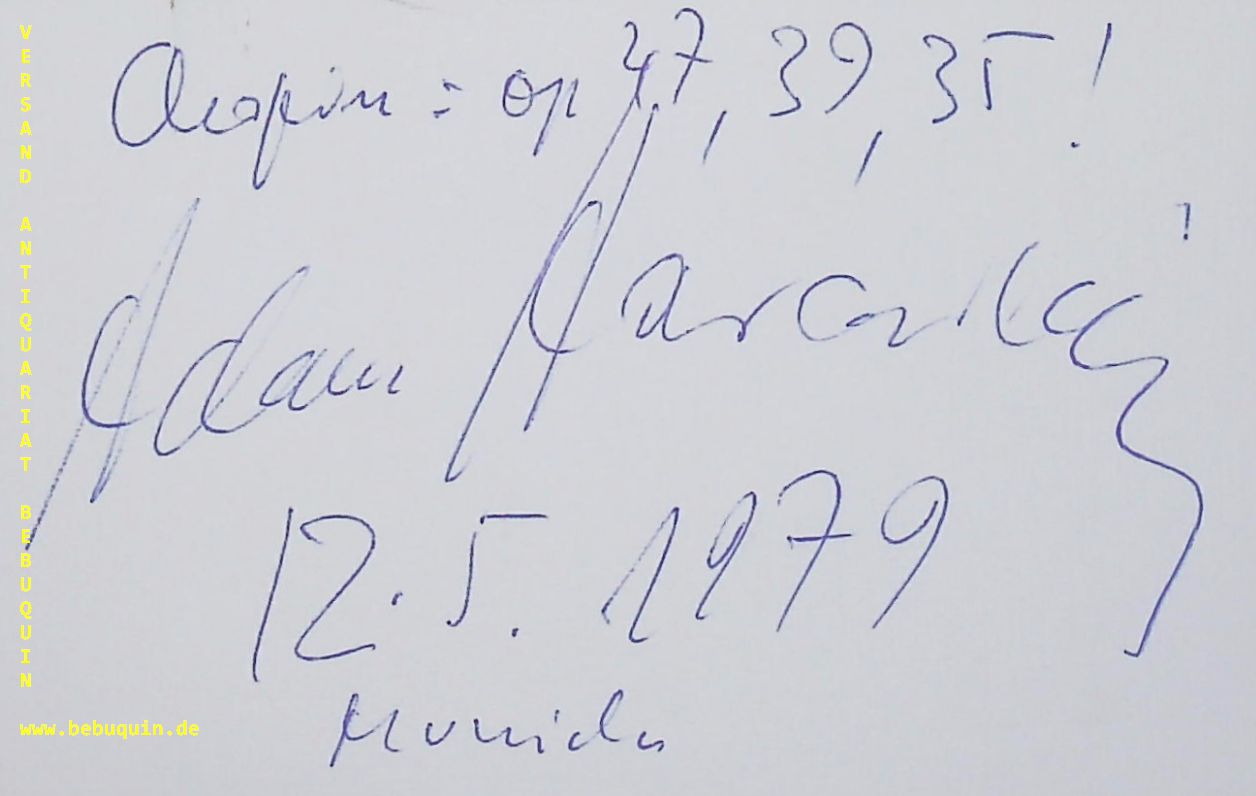 Chopin = op 47, 39, 35!
Adam Harasiewicz
12. 5. 1979
Munich
VERSAND ANTIQUARIAT BEBUQUIN
www.bebuquin.de